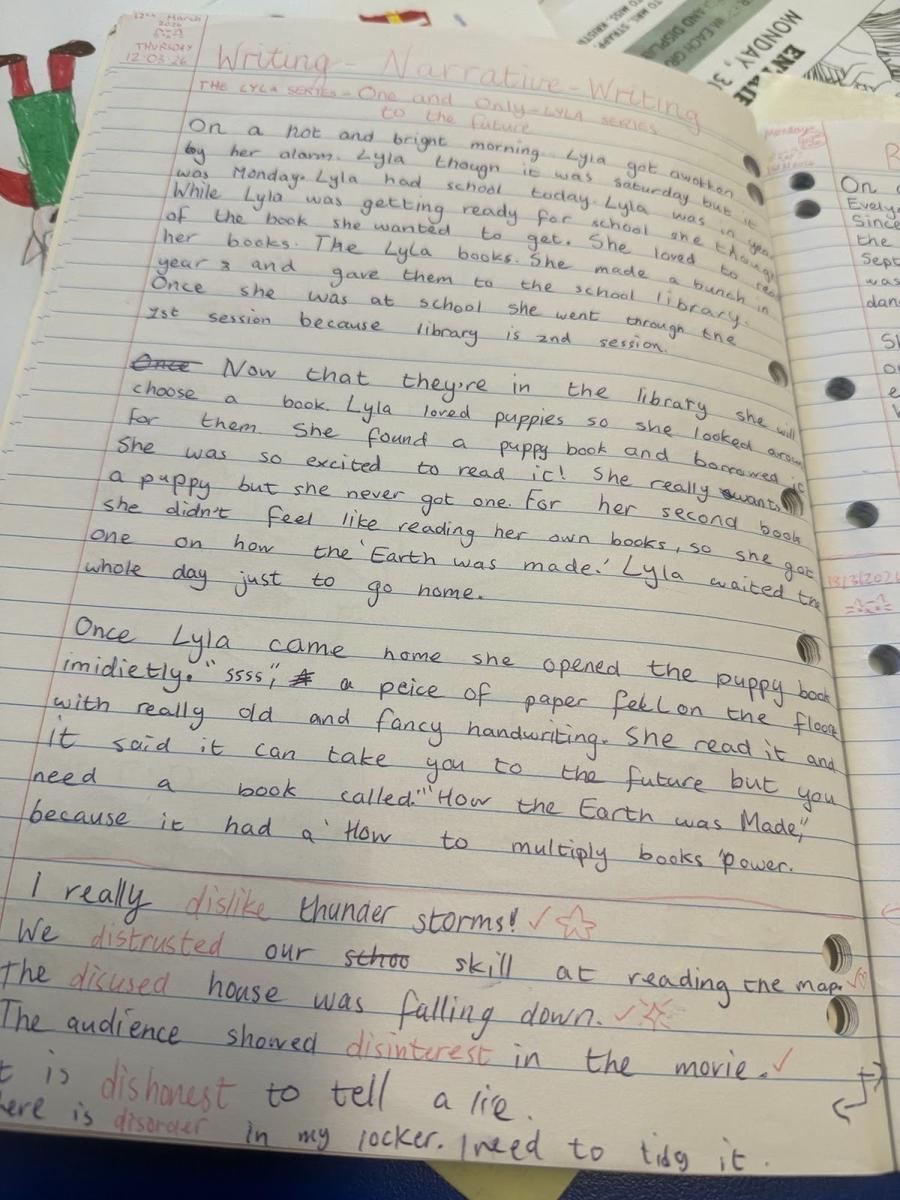 12th March
2026
THURSDAY
12.03.26
Writing - Narrative-Writing
THE LYLA SERIES - One and Only - LYLA SERIES
to the future
On a hot and bright morning Lyla got awoken
by her alarm. Lyla though it was Saturday but it
was Monday. Lyla had school today. Lyla was in year
While Lyla was getting ready for school she though
of the book she wanted to get. She loved to read
her books. The Lyla books. She made a bunch in
year 3 and gave them to the school library.
Once she was at school she went through the
1st session because library is 2nd session.
Once Now that they're in the library she will
choose a book. Lyla loved puppies so she looked aroun
for them. She found a puppy book and borrowed it
She was so excited to read it! She really wants
a puppy but she never got one. For her second book
she didn't feel like reading her own books, so she got
one on how the 'Earth was made.' Lyla waited the
whole day just to go home.
Once Lyla came home she opened the puppy book
imidietly. "ssss", a peice of paper fell on the floor
with really old and fancy handwriting. She read it and
it said it can take you to the future but you
need a book called "How the Earth was Made,"
because it had a 'How to multiply books' power.
I really dislike thunder storms!
We distrusted our schoo skill at reading the map.
The disused house was falling down.
The audience showed disinterest in the movie.
t is dishonest to tell a lie.
here is disorder in my locker. I need to tidy it.
MONDAY, 3
TO MISS. KRISTI
TO MRS. STRAPP
AND DISPL
Monday
On
Evely
Since
the
Sept
was
dan
Sh
o
e
13/3/202